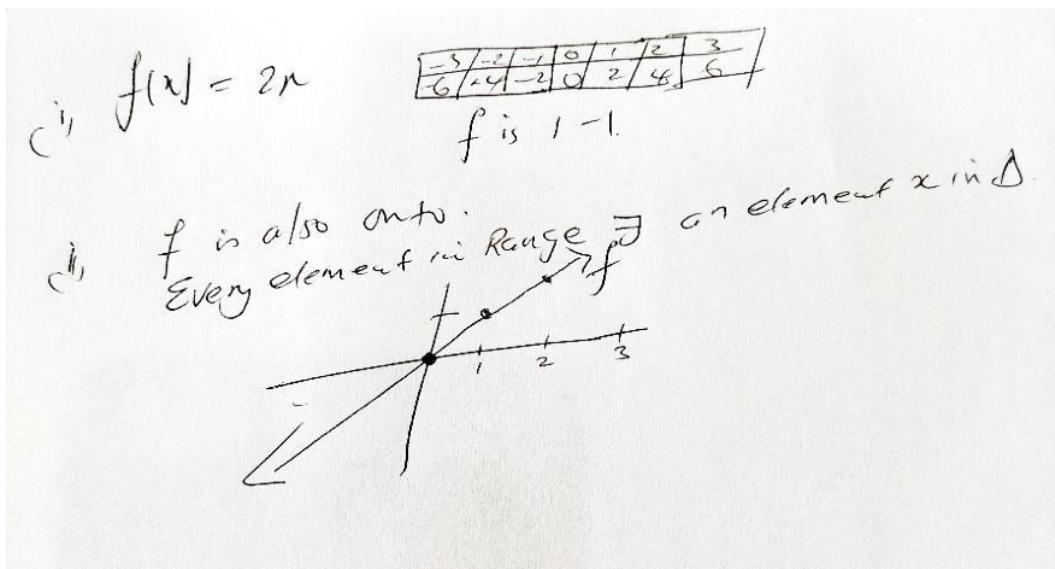 (i) f(x) = 2x
-3 -2 -1 0 1 2 3
-6 -4 -2 0 2 4 6
f is 1-1.
(ii) f is also onto.
Every element in Range ∃ an element x in D.
f
1 2 3